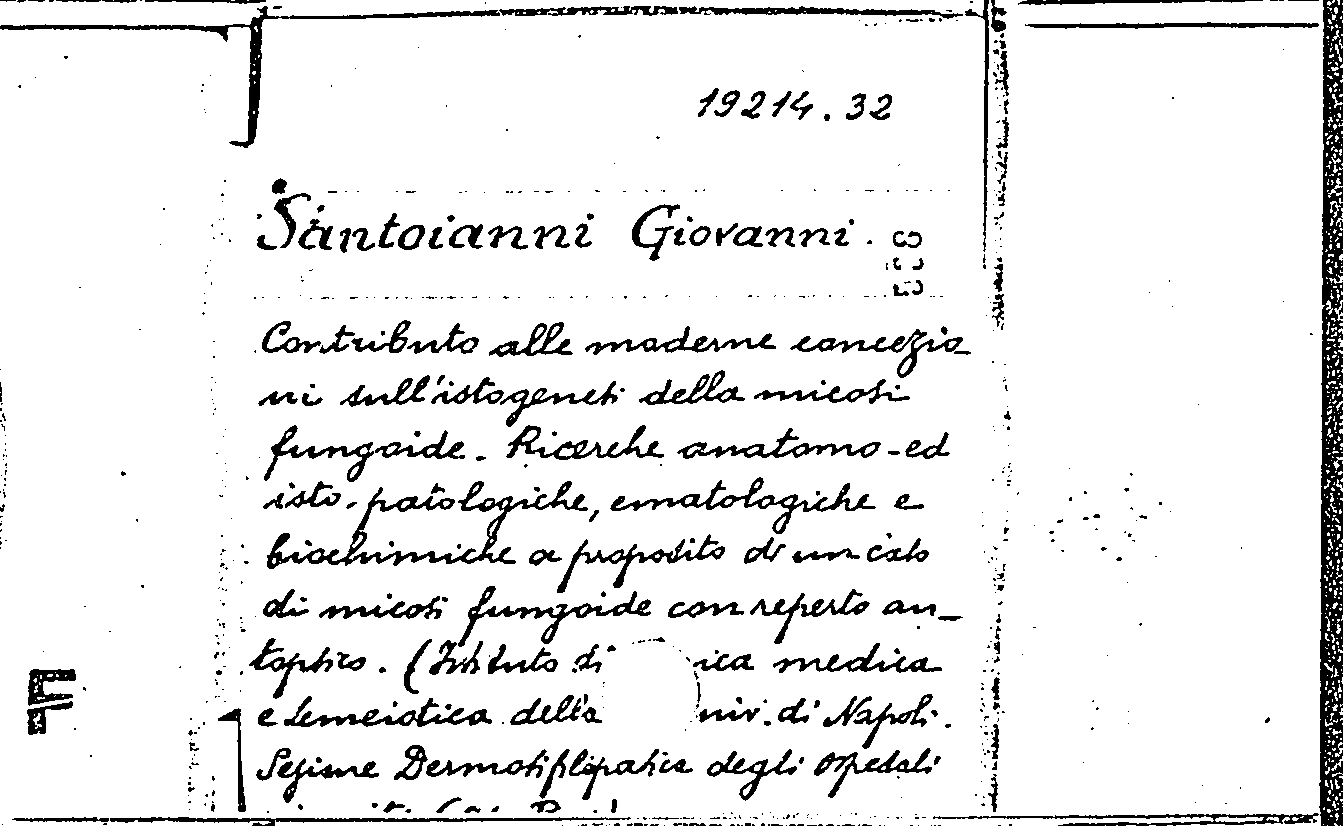 19214.32
Santoianni Giovanni.
Contributo alle moderne concezio
ni sull'istogenesi della micosi
fungoide. Ricerche anatomo-ed
isto-patologiche, ematologiche e
biochimiche a proposito di un caso
di micosi fungoide con reperto au_
toptico. (Istituto di ica medica
e Semeiotica della niv. di Napoli.
Sezione Dermosifilopatica degli Ospedali
F